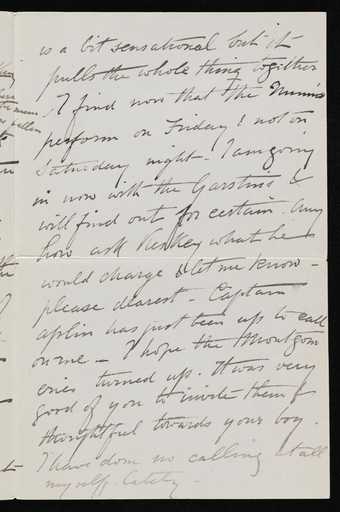 is a bit sensational but it
pulls the whole thing together
I find now that the
perform on Friday! not on
Saturday night - I am going
in now with the Garstins &
will find out for certain. Any
how ask what he
would charge & let me know -
please dearest - Captain
Aplin has just been up to call
on me - I hope the Montgom
eries turned up. It was very
good of you to invite them &
thoughtful towards your boy.
I have done no calling at all
myself lately -